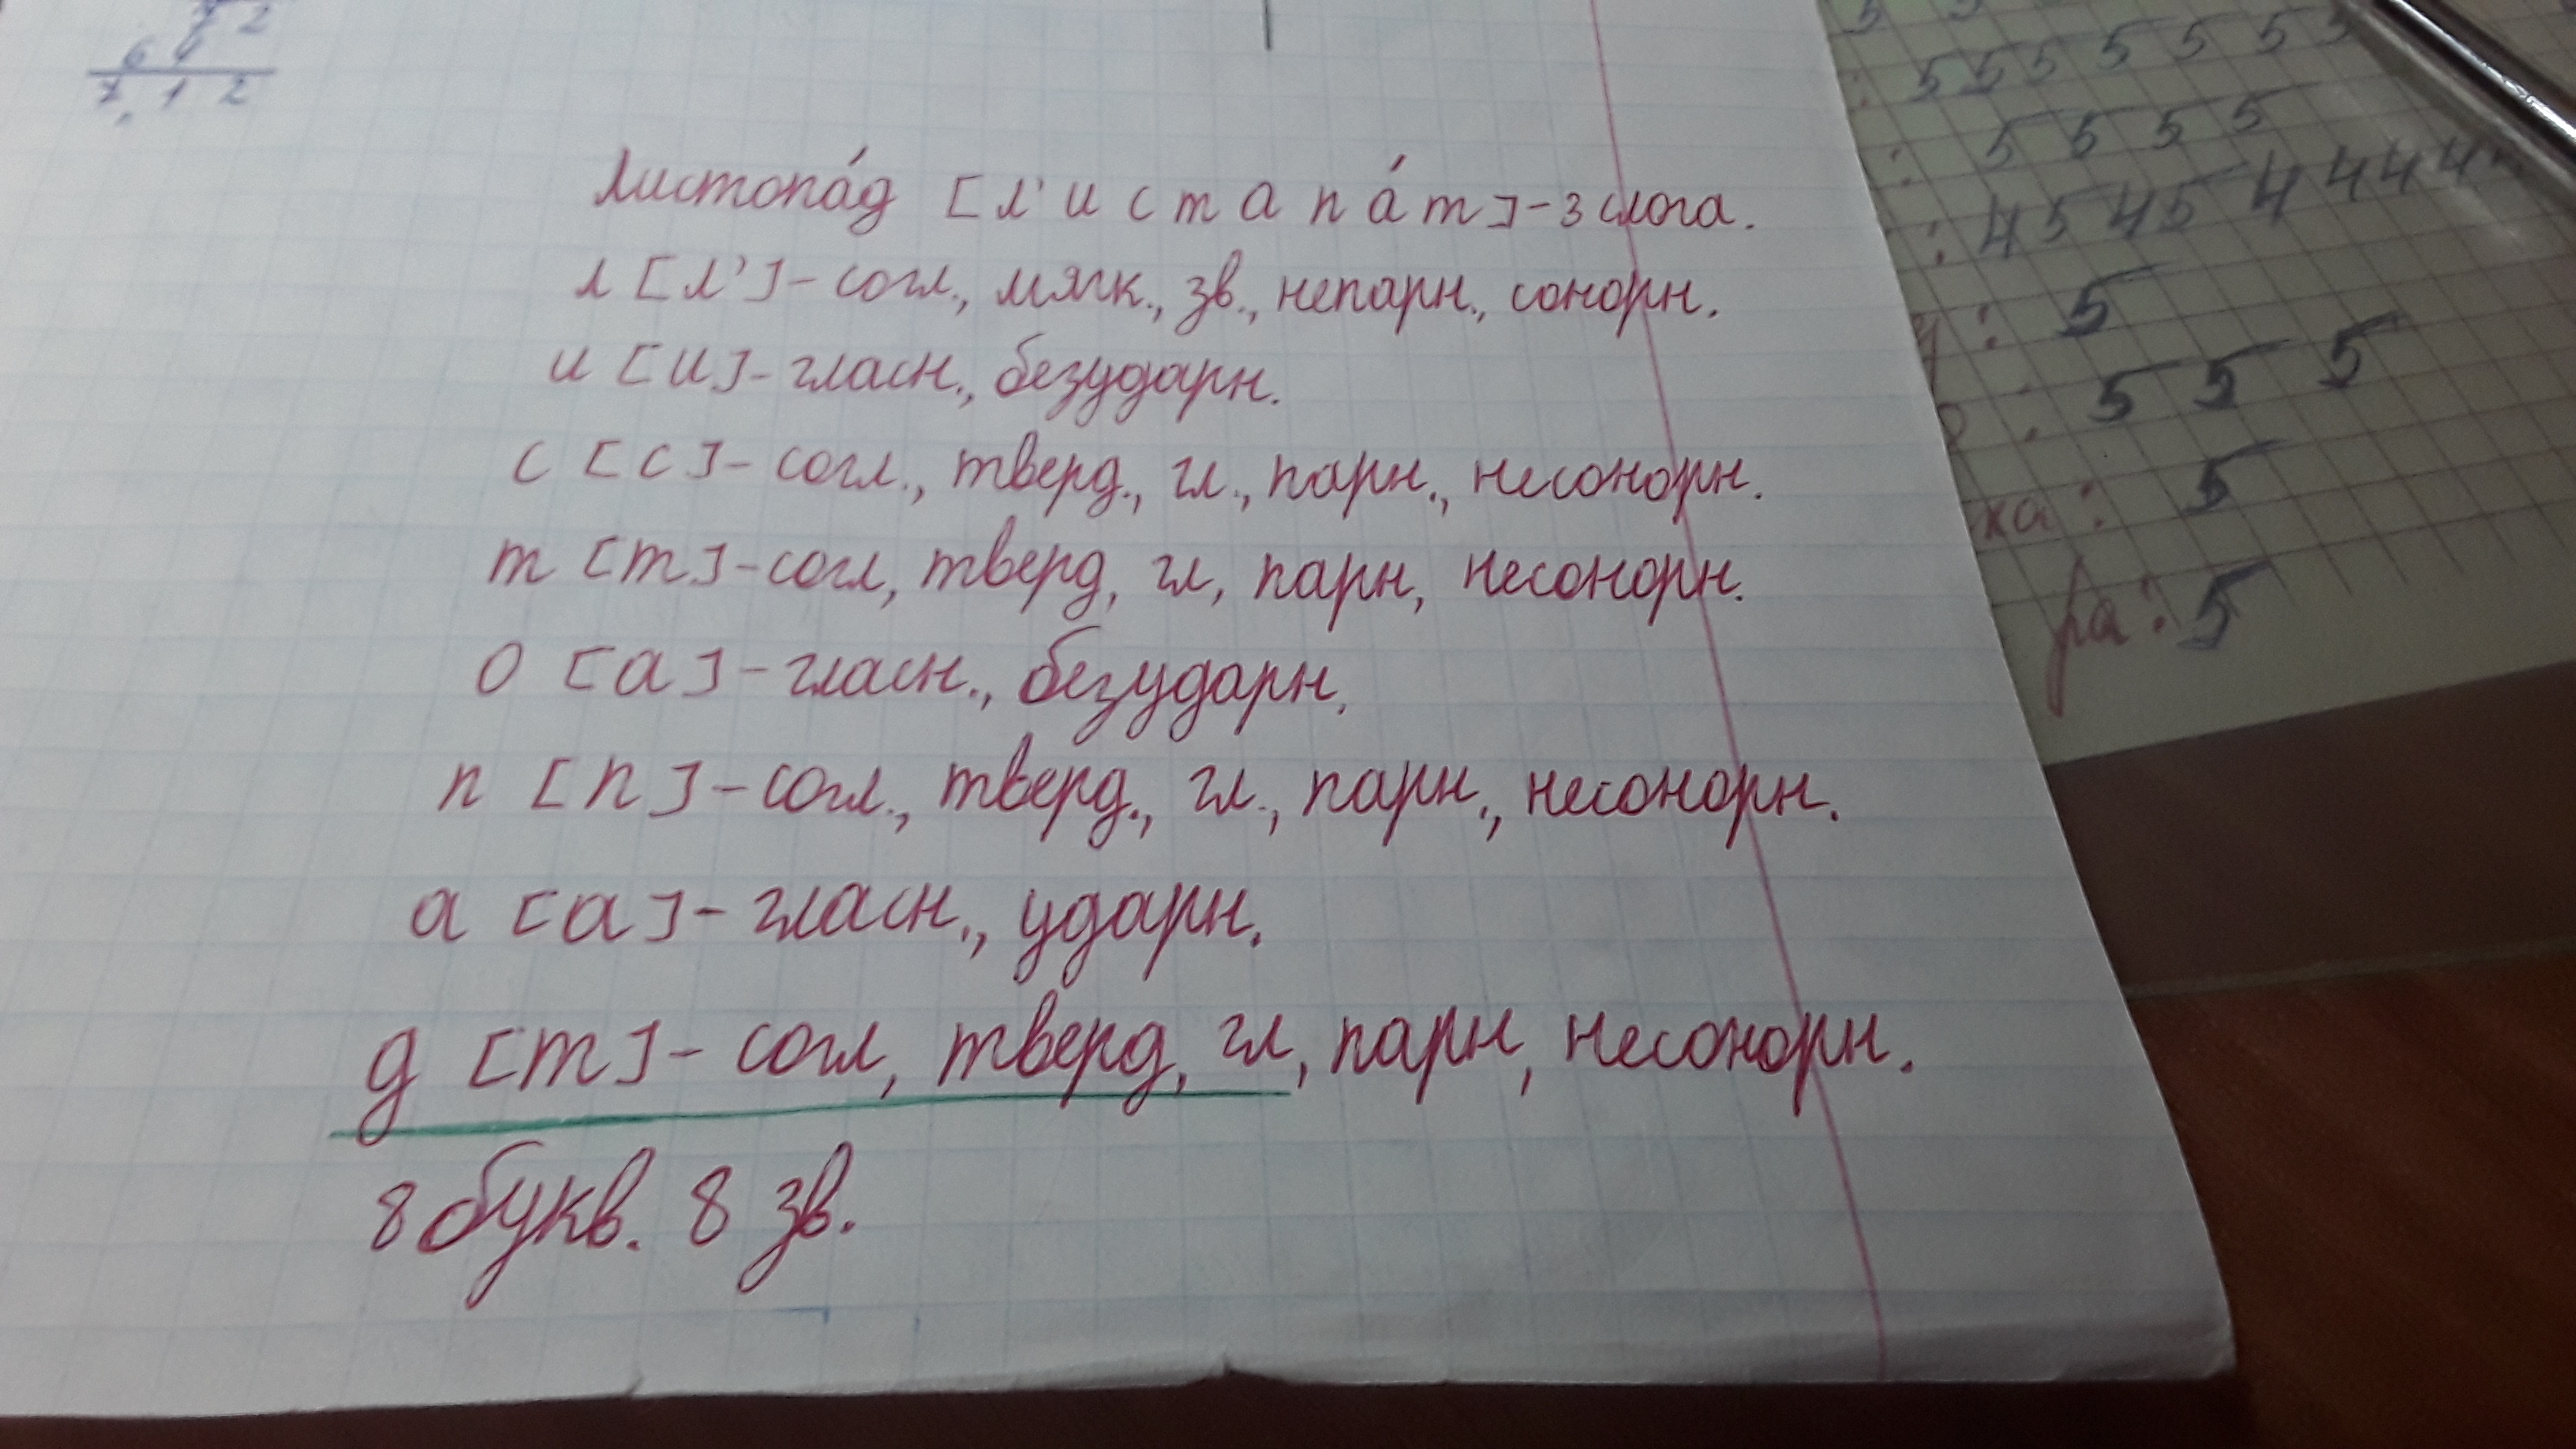 7 2
6 4
7, 1 2
Листопа́д [л' и с т а п а́ т] - 3 слога.
л [л'] - согл., мягк., зв., непарн., сонорн.
и [и] - гласн., безударн.
с [с] - согл., тверд., гл., парн., несонорн.
т [т] - согл, тверд, гл, парн, несонорн.
о [а] - гласн., безударн.
п [п] - согл., тверд., гл., парн., несонорн.
а [а] - гласн., ударн.
д [т] - согл, тверд, гл, парн, несонорн.
8 букв. 8 зв.
: 5 5 5 5 5 5 5
: 5 5 5 5
: 4 5 4 5 4 4 4 4
: 5
: 5 5 5
ка: 5
ра: 5